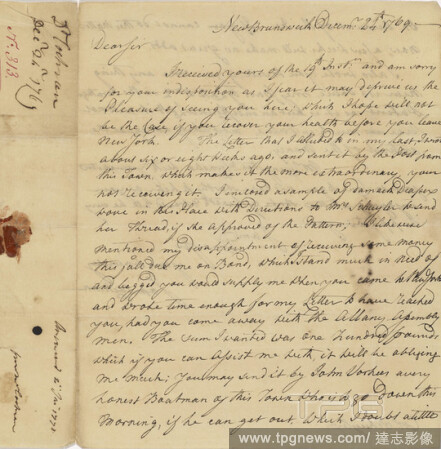 Dr Cochran
Decr 24th 1769
No. 313
New Brunswick Decemr 24th 1769
Dear Sir
I received yours of the 19th Inst. and am sorry
for your indisposition as I fear it may deprive us the
Pleasure of seeing you here; which I hope will not
be the Case if you recover your health before you leave
New York. The Letter that I alluded to in my last I wrote
about six or eight weeks ago, and sent it by the Post from
this Town, which makes it the more extraordinary, your
not receiving it. I inclosed a sample of damask Diapers
wove in this Place with directions to Mrs Schuyler to send
her Thread, if she approved of the Pattern; I likewise
mentioned my disappointment of receiving some money
this fall due me on Bond, which I stand much in need of
and begged you would supply me when you came to New York
and wrote time enough for my Letter to have reached
you, had you come away with the Albany Assembly
men. The Sum I wanted was one hundred pounds
which if you can assist me with, it will be obliging
me much; You may send it by John Voorhees a very
honest Boatman of this Town who is to go Down this
Morning, if he can get out, which I doubt a little
www.tpgnews.com / 達志影像
TPG